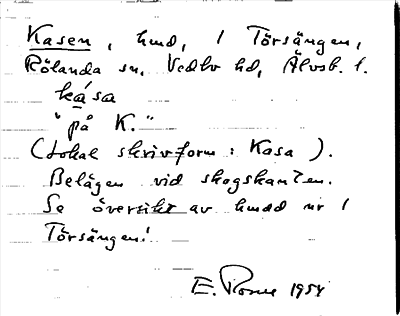 Kasen, hmd, 1 Törsängen,
Rölanda sn, Vedbo hd, Älvsb. l.
kása
"på K."
(Lokal skrivform: Kasa).
Belägen vid skogskanten.
Se översikt av hmdd nr 1
Törsängen!
E. 1954